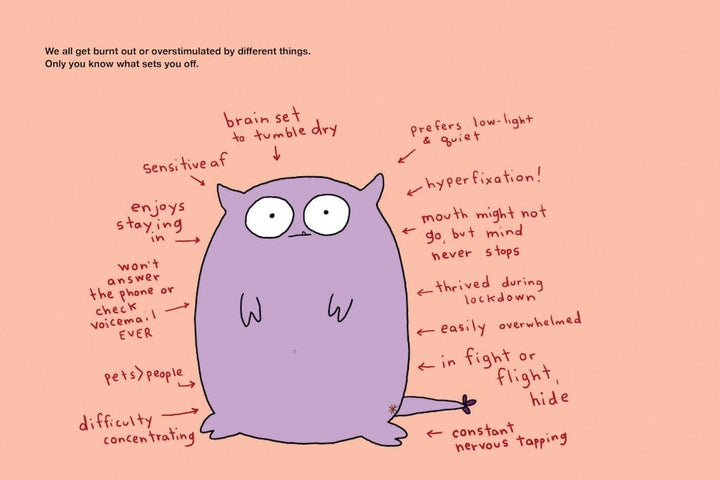 We all get burnt out or overstimulated by different things.
Only you know what sets you off.
brain set
to tumble dry
sensitive af
enjoys
staying
in
won't
answer
the phone or
check
voicemail
EVER
pets>people
difficulty
concentrating
prefers low-light
& quiet
hyperfixation!
mouth might not
go, but mind
never stops
thrived during
lockdown
easily overwhelmed
in fight or
flight,
hide
constant
nervous tapping